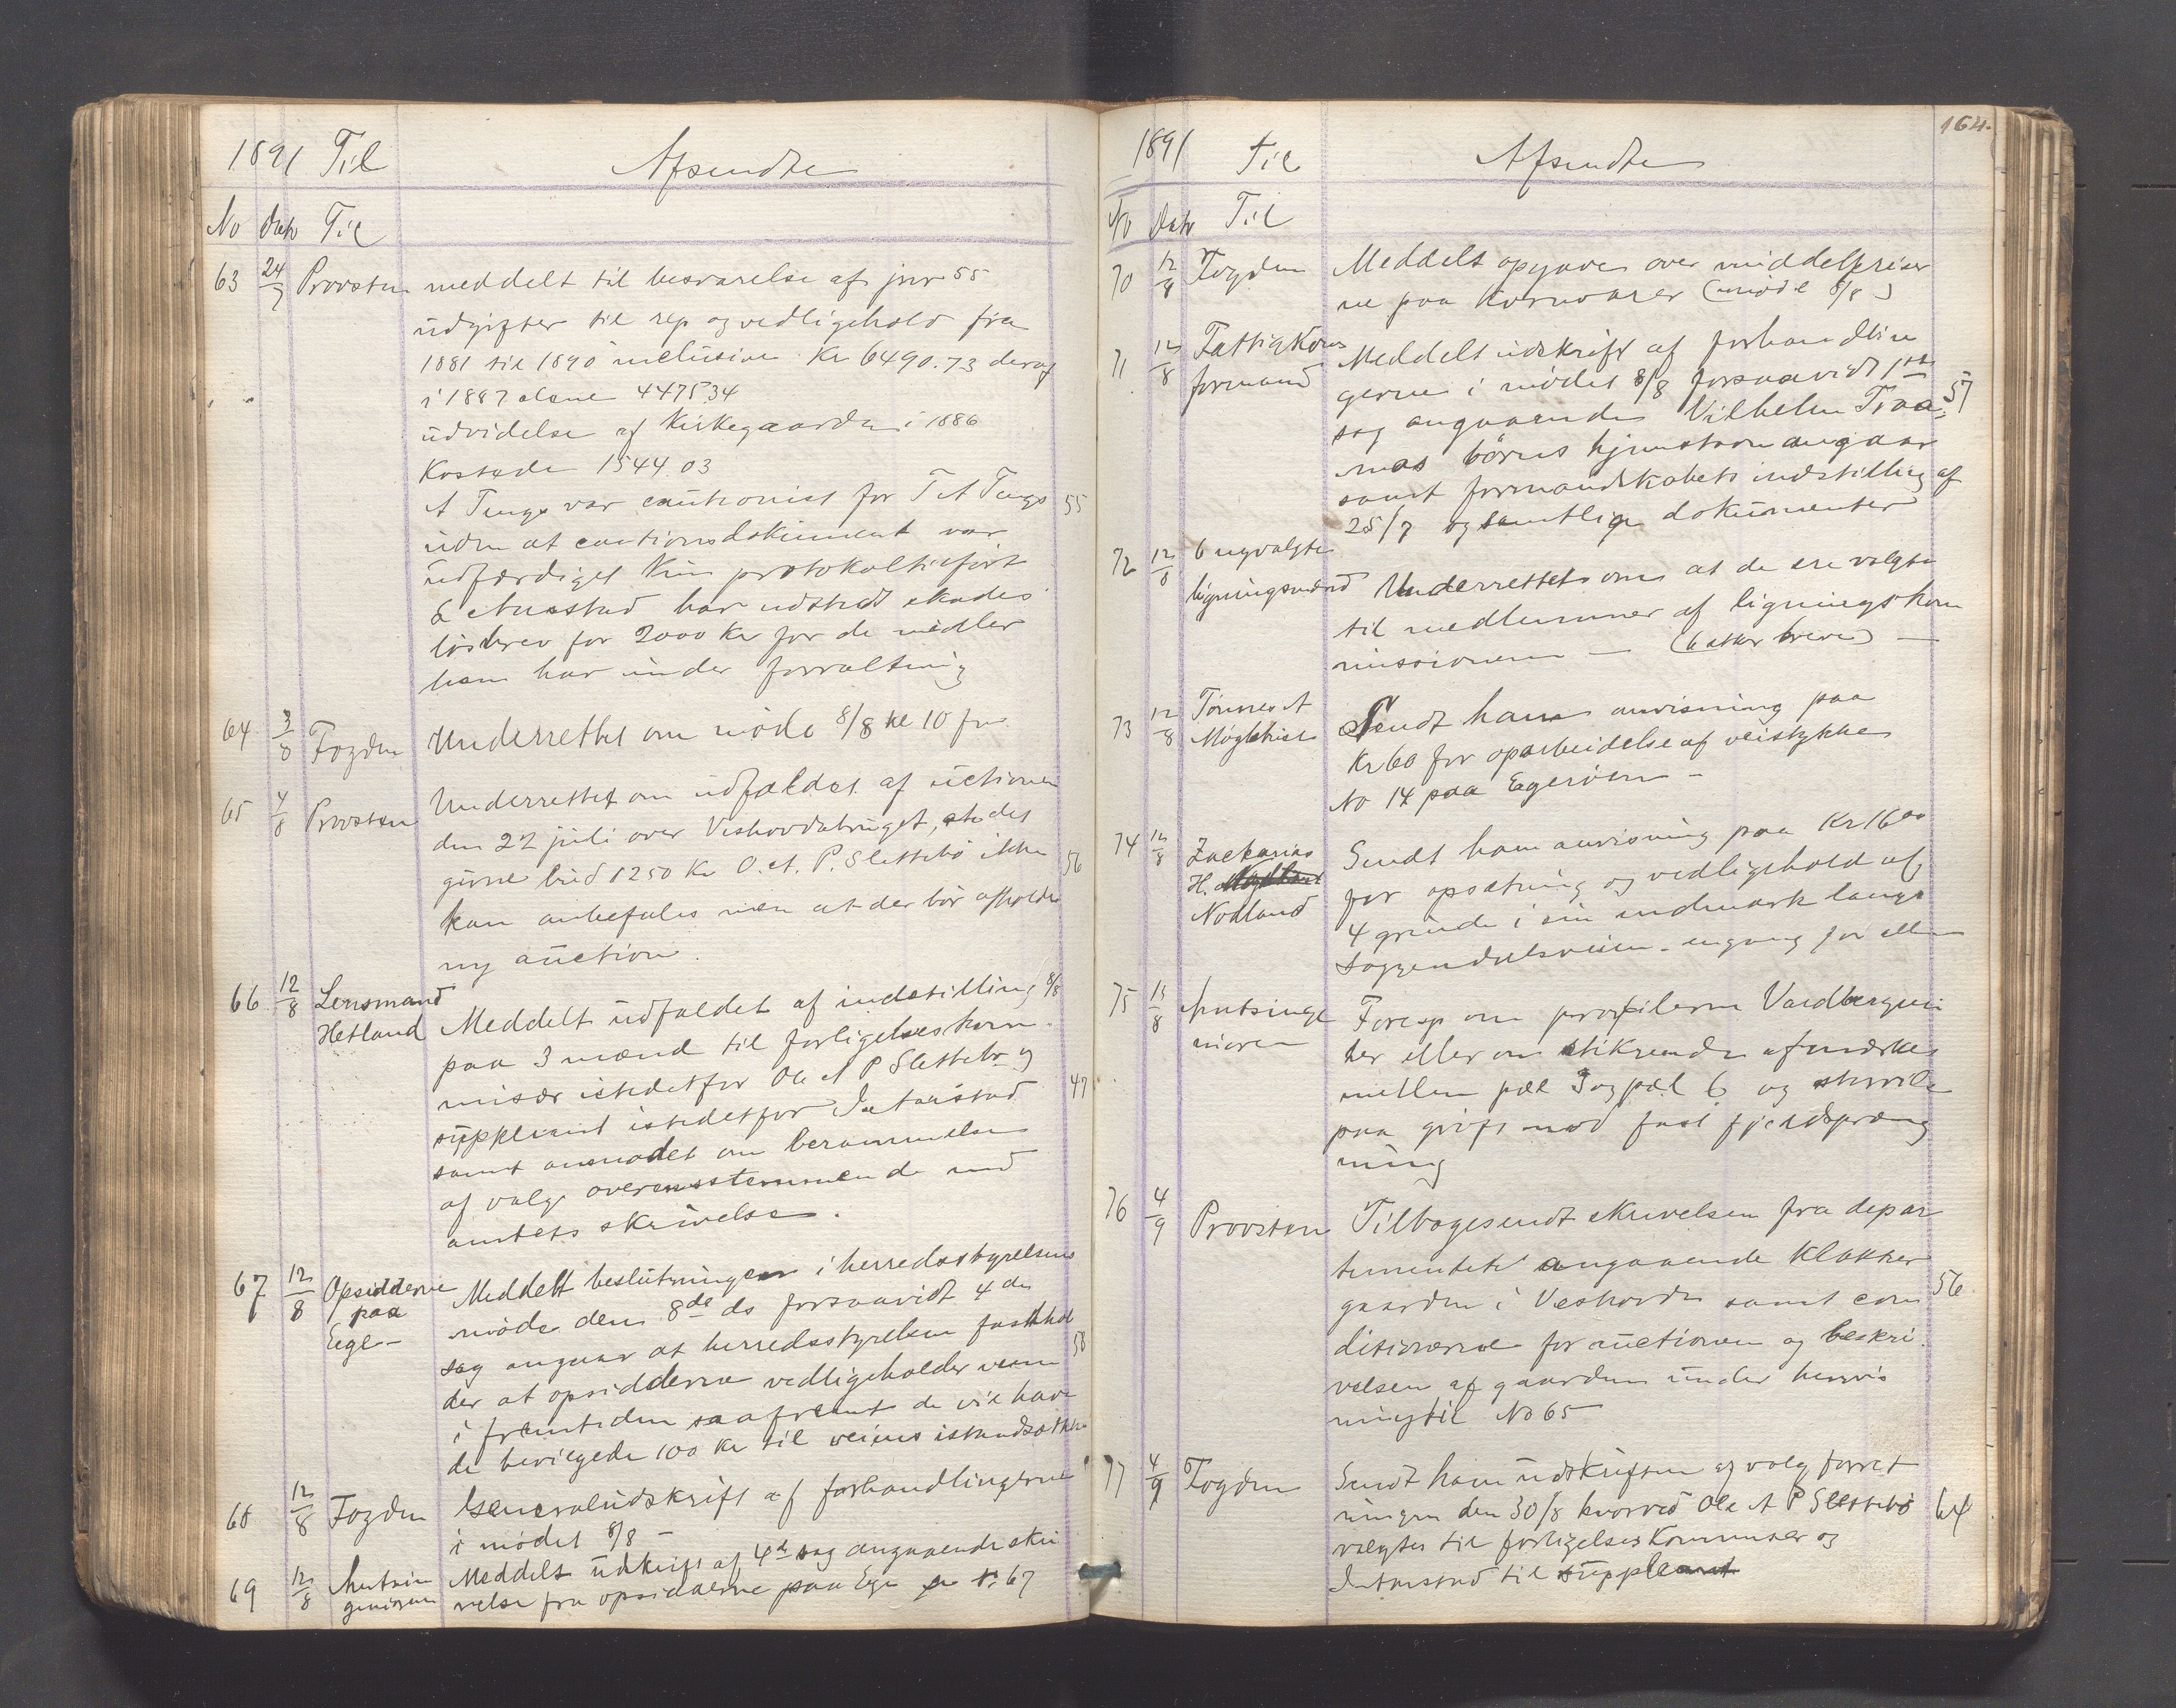 1891 Til Afsendte
No Dato Til
63 24/7 Provsten meddelt til besvarelse af jnr 55
udgifter til rep og vedligehold fra
1881 til 1890 inclusive Kr 6490.73 deraf
i 1887 alene 4475.34
udvidelse af Kirkegaarden i 1886
Kostede 1544.03
A Tengs var cautionist for T A Tengs 55
uden at cautionsdokument var
udfærdiget kun protokoltilført
har udstedt skades
løsbrev for 2000 Kr for de midler
han har under forvaltning
64 3/8 Fogden Underrettet om møde 8/8 kl 10 fm
65 4/8 Provsten Underrettet om udfaldet af auctionen
den 22 juli over Veshovdabruget, at det
givne bud 1250 Kr O. A. P. Slettebø ikke 56
kan anbefales men at der bør afholdes
ny auction.
66 12/8 Lensmand Meddelt udfaldet af indstilling 8/8
Hetland
paa 3 mænd til forligelseskom-
misær istedetfor Ole A P Slettebø og
suppleant istedetfor I Aarstad 47
samt anmodet om berammelse
af valg overensstemmende med
amtets skrivelse.
67 12/8 Opsidderne Meddelt beslutningen i herredsstyrelsens
paa
Ege-
møde den 8de ds forsaavidt 4de
sag angaar at herredsstyrelsen fasthol
der at opsidderne vedligeholder veien 58
i fremtiden saafremt de vil have
de bevilgede 100 Kr til veiens istandsættelse
68 12/8 Fogden Generaludskrift af forhandlingerne
i mødet 8/8 -
69 12/8 Amtsin Meddelt udskrift af 4de sag angaaende skri
geniøren velse fra opsidderne paa Ege 67
164.
1891 Til Afsendte
No Dato Til
70 12/8 Fogden Meddelt opgave over middelpriser
ne paa Kornvarer (møde 8/8)
71 12/8 Fattigkoms Meddelt udskrift af forhandlin
formand gerne i mødet 8/8 forsaavidt 1ste
sag angaaende Vilhelm Traa- 57
mas børns hjemstavn angaar
samt formandskabets indstilling af
25/7 og samtlige dokumenter
72 12/8 6 nyvalgte
ligningsmænd Underrettet om at de ere valgte
til medlemmer af ligningskom
missionen — (6 breve) —
73 12/8 Tønnes A Sendt ham anvisning paa
Møglebust
Kr 60 for oparbeidelse af veistykke
No 14 paa Egerøen -
74 12/8 Zackarias Sendt ham anvisning paa Kr 16 00
H.
Nodland for opsætning og vedligehold af
4 grinde i sin indmark langs
Soggendalsveien - engang for alle
75 15/8 Amtsinge
niøren Foresp om profilerne
her eller om stikrende afmærkes
mellem pæl 3 og pæl 6 og
paa grøft med fast fjeldspræng
ning
76 4/9 Provsten Tilbagesendt skrivelsen fra depar
tementet angaaende Klokker
gaarden i Veshovde samt con 56
ditionerne for auctionen og beskri-
velsen af gaarden under henvis
ning til No 65
77 4/9 Fogden Sendt ham udskriften af valg forret
ningen den 30/8 hvorved Ole A P Slettebø 64
valgtes til forligelseskommisær og
I Aarstad til suppleant